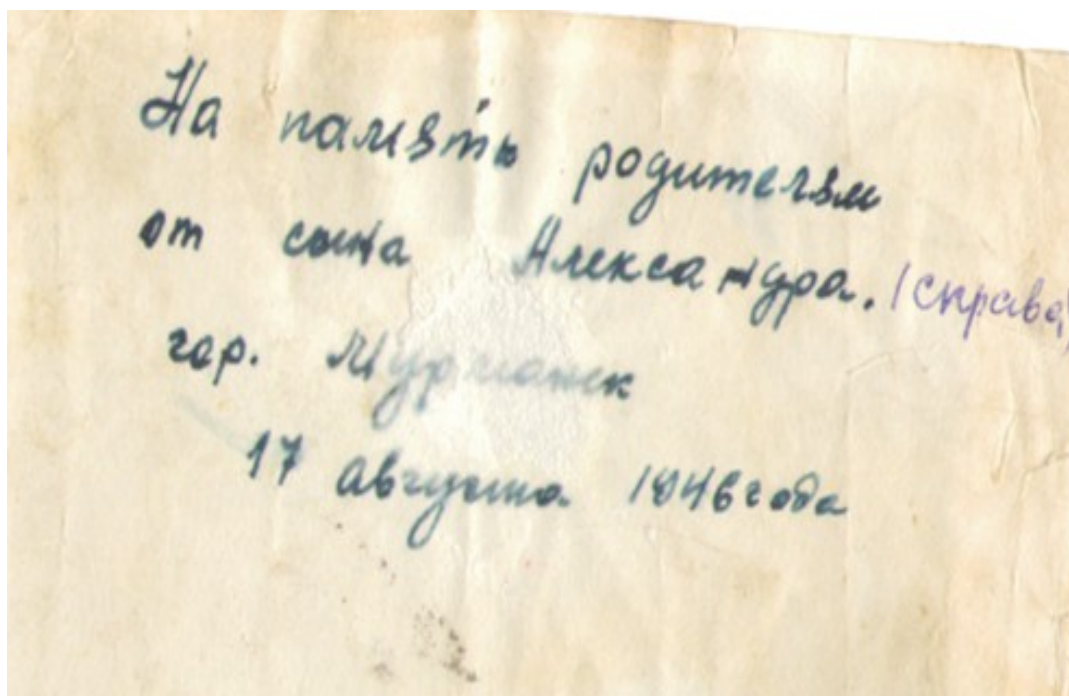 На память родителям
от сына Александра. (справа)
гор. Мурманск
17 августа 1946 года